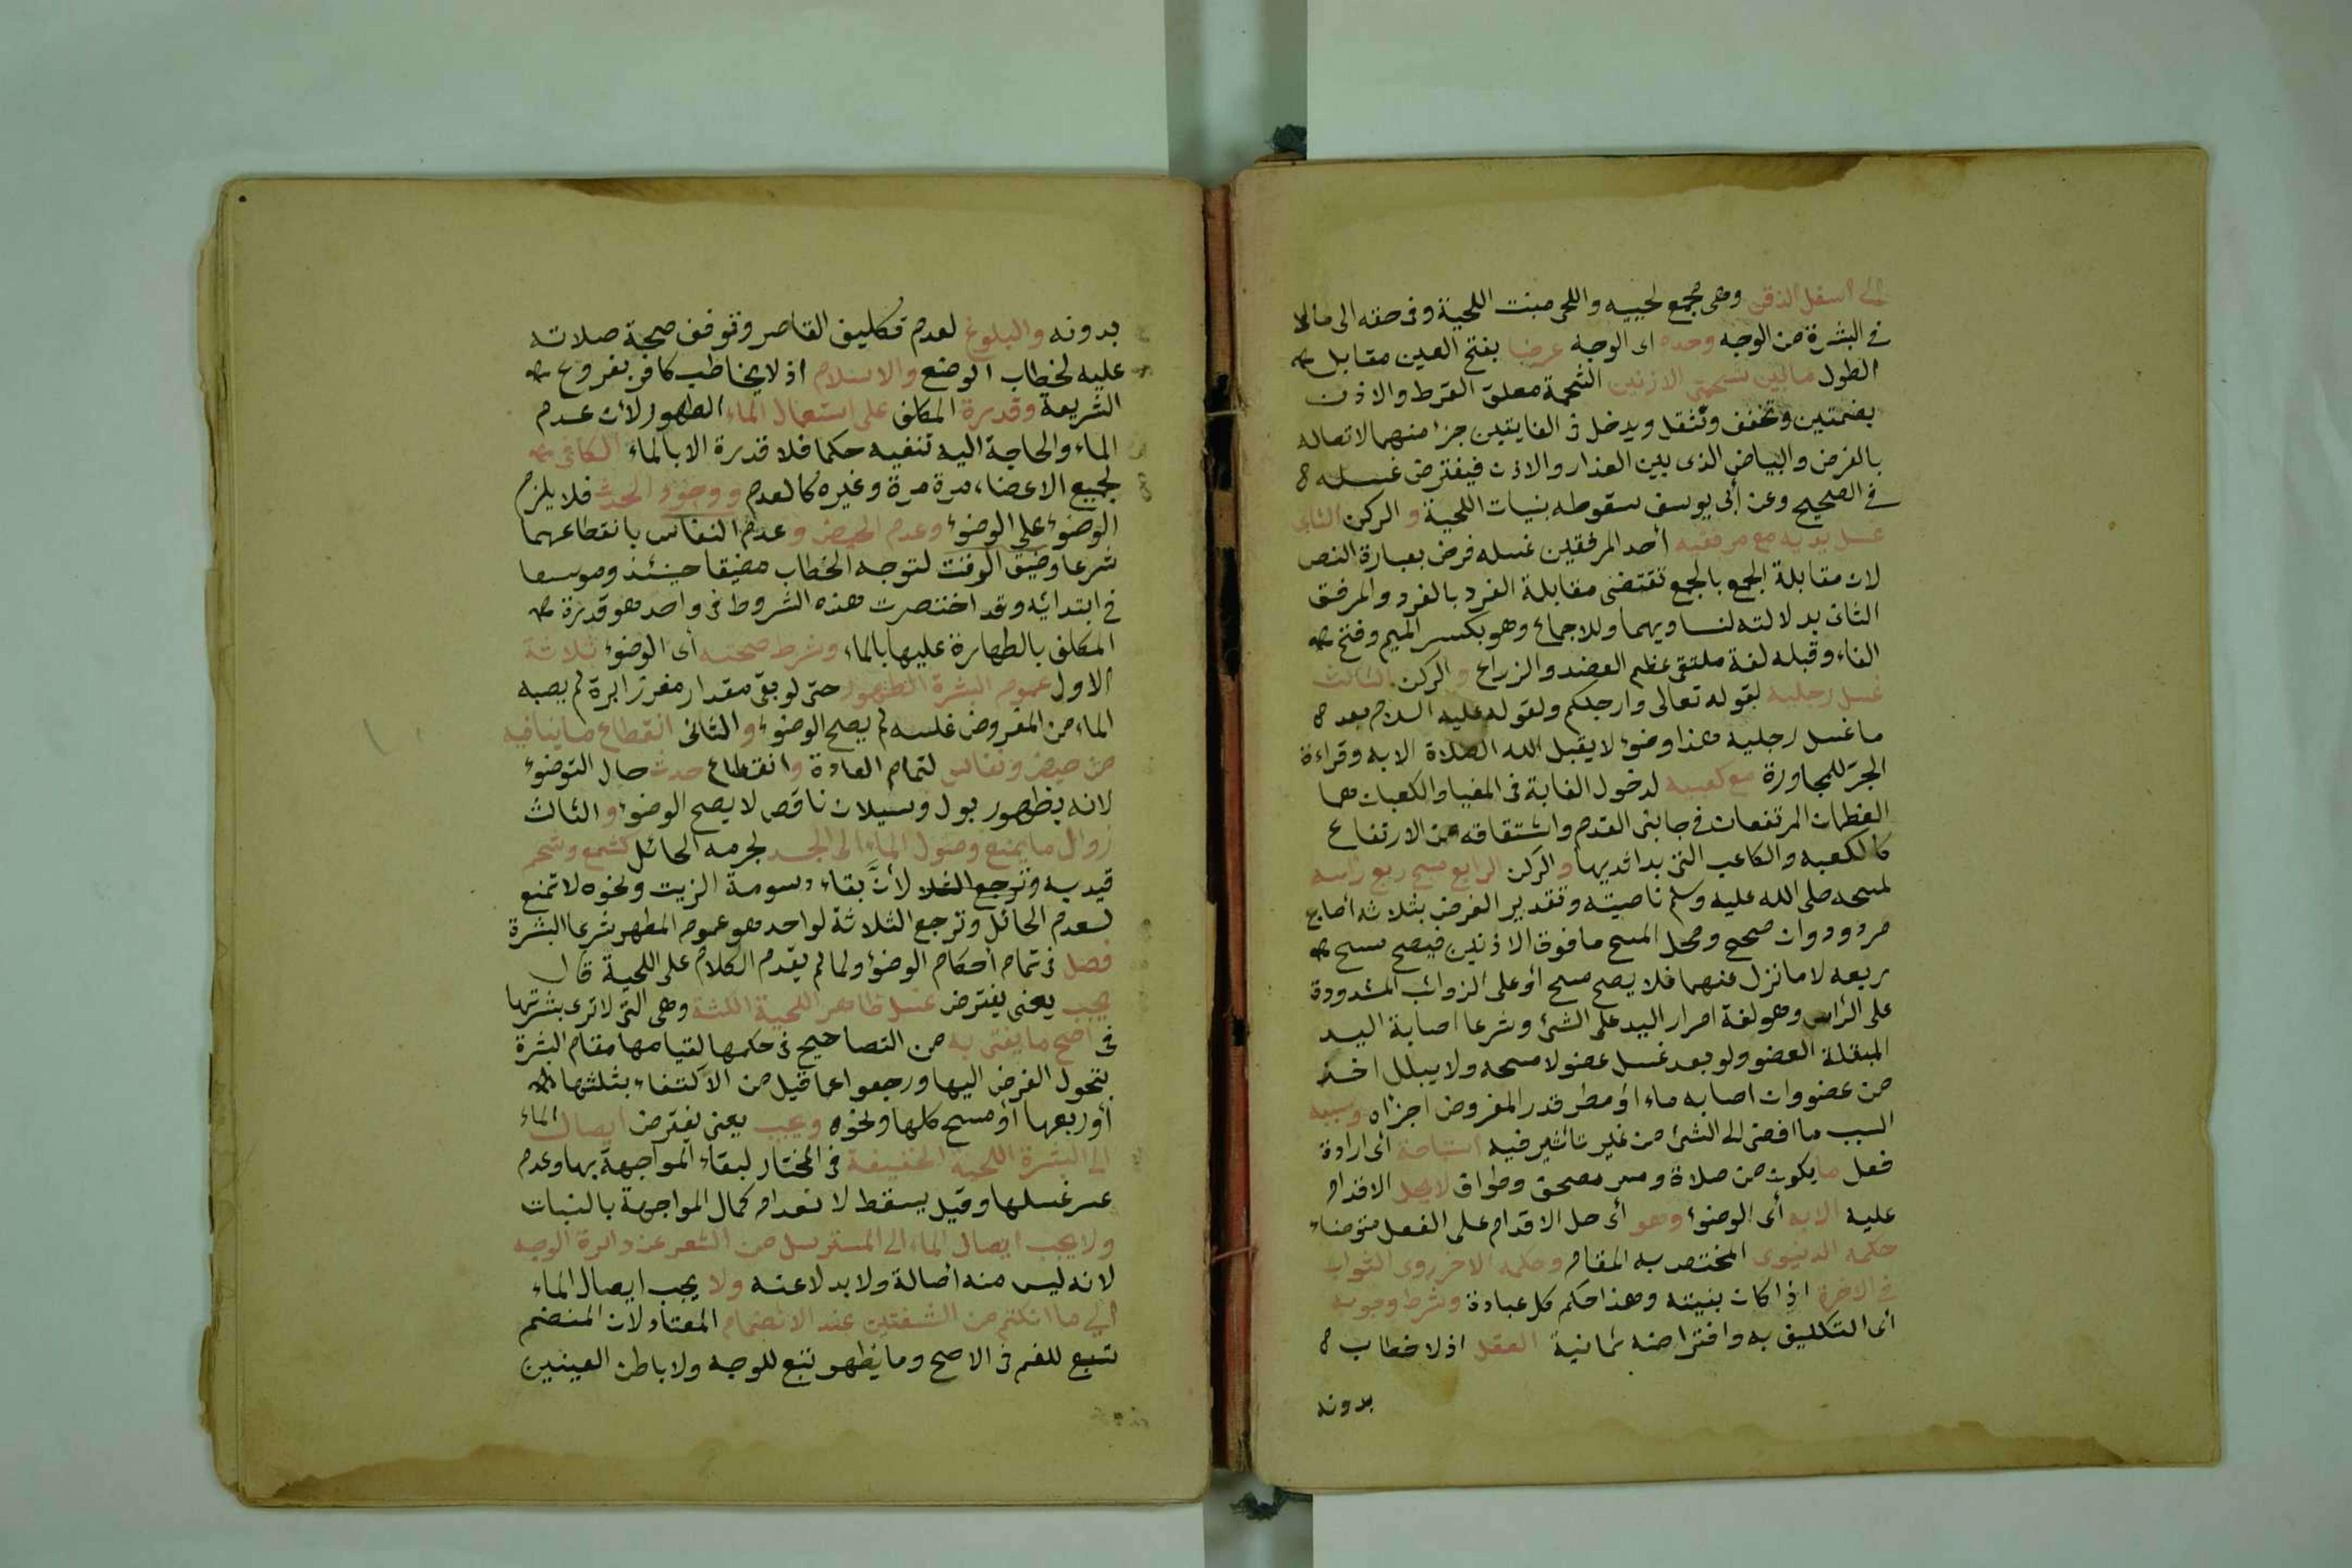 الى اسفل الذقن وهى مجمع لحييه واللحى منبت اللحية وفى حقه الى مالا
فى البشرة من الوجه وحده اى الوجه عرضا بفتح العين مقابل
الطول مابين شحمتى الاذنين الشحمة معلق القرط والاذن
بضمتين وتخفف وتثقل ويدخل فى الغايتين جزا منهما لاتصاله
بالفرض والبياض الذى بين العذار والاذن فيفترض غسله
فى الصحيح وعن أبى يوسف سقوطه بنبات اللحية و الركن الثانى
غسل يديه مع مرفقيه أحد المرفقين غسله فرض بعبارة النص
لان مقابلة الجمع بالجمع تقتضى مقابلة الفرد بالفرد والمرفق
الثانى بدلالته لتساويهما وللاجماع وهو بكسر الميم وفتح
الفاء وقبله لغة ملتقى عظم العضد والزراع و الركن الثالث
غسل رجليه لقوله تعالى وارجلكم ولقوله عليه السلام بعد
ما غسل رجليه هذا وضوء لا يقبل الله الصلاة الا به وقراءة
الجر للمجاورة مع كعبيه لدخول الغاية فى المغيا والكعبان هما
العظمان المرتفعان فى جانبى القدم واشتقاقه من الارتفاع
كالكعبه والكاعب التى بدا ثديها والركن الرابع مسح ربع راسه
لمسحه صلى الله عليه وسلم ناصيته وتقدير الفرض بثلاثه أصابع
مردود وان صحح ومحل المسح ما فوق الاذنين فيصح مسح
ربعه لا ما نزل عنهما فلا يصح مسح أو على الزوائب المشدودة
على الراس وهو لغة امرار اليد على الشئ وشرعا اصابة اليد
المبتلة العضو ولو بعد غسل عضو لا مسحه ولا يبلل اخذ
من عضو وان اصابه ماء او مطر قدر المفروض اجزاه وسببه
السبب ما افضى الى الشئ من غير تأثير فيه استباحة اى ارادة
فعل ما يكون من صلاة ومس مصحف وطواف لا يحل الاقدام
عليه الا به أى الوضوء وهو أى حل الاقدام على الفعل متوضاء
حكمه الدنيوى المختص به المقام وحكمه الاخروى الثواب
فى الاخرة اذا كان بنيته وهذا حكم كل عبادة وشرط وجوبه
اى التكليف به وافتراضه ثمانية العقل اذ لا خطاب
بدونه
بدونه والبلوغ لعدم تكليف القاصر وتوقف صحة صلاته
عليه لخطاب الوضع والاسلام اذ لا يخاطب كافر بفروع
الشريعة وقدرة المكلف على استعمال الماء الطهور لأن عدم
الماء والحاجة اليه تنفيه حكما فلا قدرة الا بالماء الكافى
لجميع الاعضاء مرة مرة وغيره كالعدم ووجود الحدث فلا يلزم
الوضوء على الوضوء وعدم الحيض و عدم النفاس بانقطاعهما
شرعا وضيق الوقت لتوجه الخطاب مضيقا حينئذ وموسعا
فى ابتدائه وقد اختصرت هذه الشروط فى واحد هو قدرة
المكلف بالطهارة عليها بالماء وشرط صحته أى الوضوء ثلاثة
الاول عموم البشرة الطهور حتى لو بقى مقدار مغرز ابرة لم يصبه
الماء من المفروض غلسه لم يصح الوضوء والثانى انقطاع ماينافيه
من حيض ونفاس لتمام العادة وانقطاع حدث حال التوضوء
لانه بظهور بول وسيلان ناقص لا يصح الوضوء و الثالث
زوال ما يمنع وصول الماء الى الجسد لجرمه الحائل كشمع وشحم
قيد به وترجع الغلا لأنَّ بقاء دسومة الزيت ونحوه لا تمنع
لعدم الحائل وترجع الثلاثة لواحد هو عموم المطهر شرعا البشرة
فصل فى تمام أحكام الوضوء ولما لم يقدم الكلام على اللحية قال
يجب يعنى يفترض غسل ظاهر اللحية الكثة وهى التى لا ترى بشرتها
فى اصح ما يفتى به من التصاحيح فى حكمها لقيامها مقام البشرة
بتحول الفرض اليها ورجعوا عما قيل من الاكتفاء بثلثها
أو ربعها أو مسح كلها ونحوه ويجب يعنى يفترض ايصال الماء
الى البشرة اللحية الخفيفة فى المختار لبقاء المواجهة بها وعدم
عسر غسلها وقيل يسقط لانعدام كمال المواجهة بالنبات
ولا يجب ايصال الماء الى المسترسل من الشعر عن دائرة الوجه
لانه ليس منه أصالة ولا بدلا عنه ولا يجب ايصال الماء
الى ما انكتم من الشفتين عند الانضمام المعتاد لان المنضم
تبع للفم فى الاصح وما يظهر تبع للوجه ولا باطن العينين